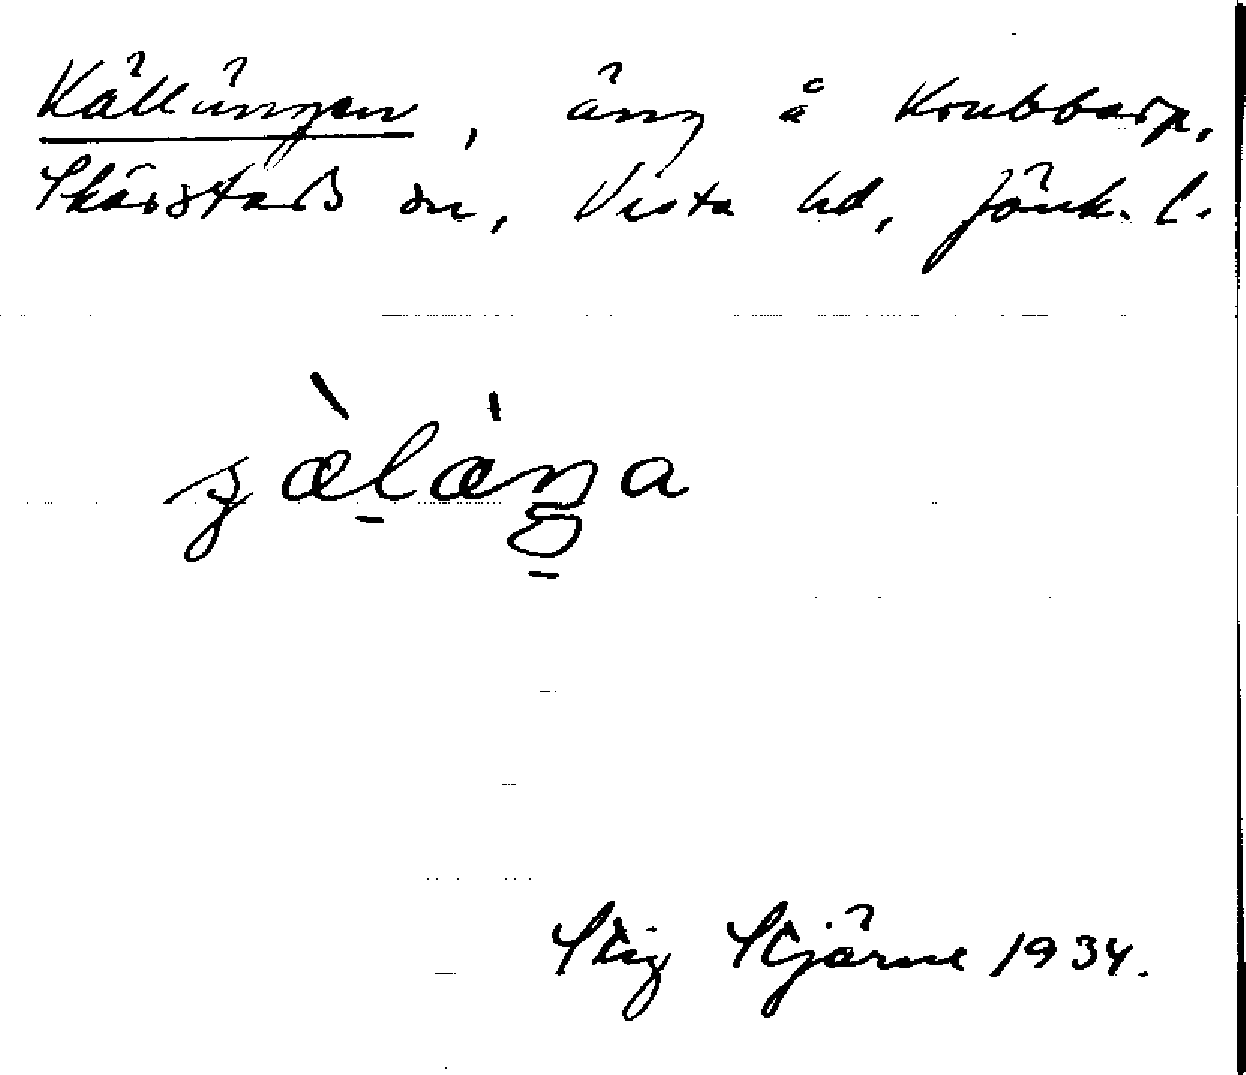 Källängen, äng å Krubbarp,
Skärstads sn, Vista hd, Jönk. l.
Stig Stjärne 1934.